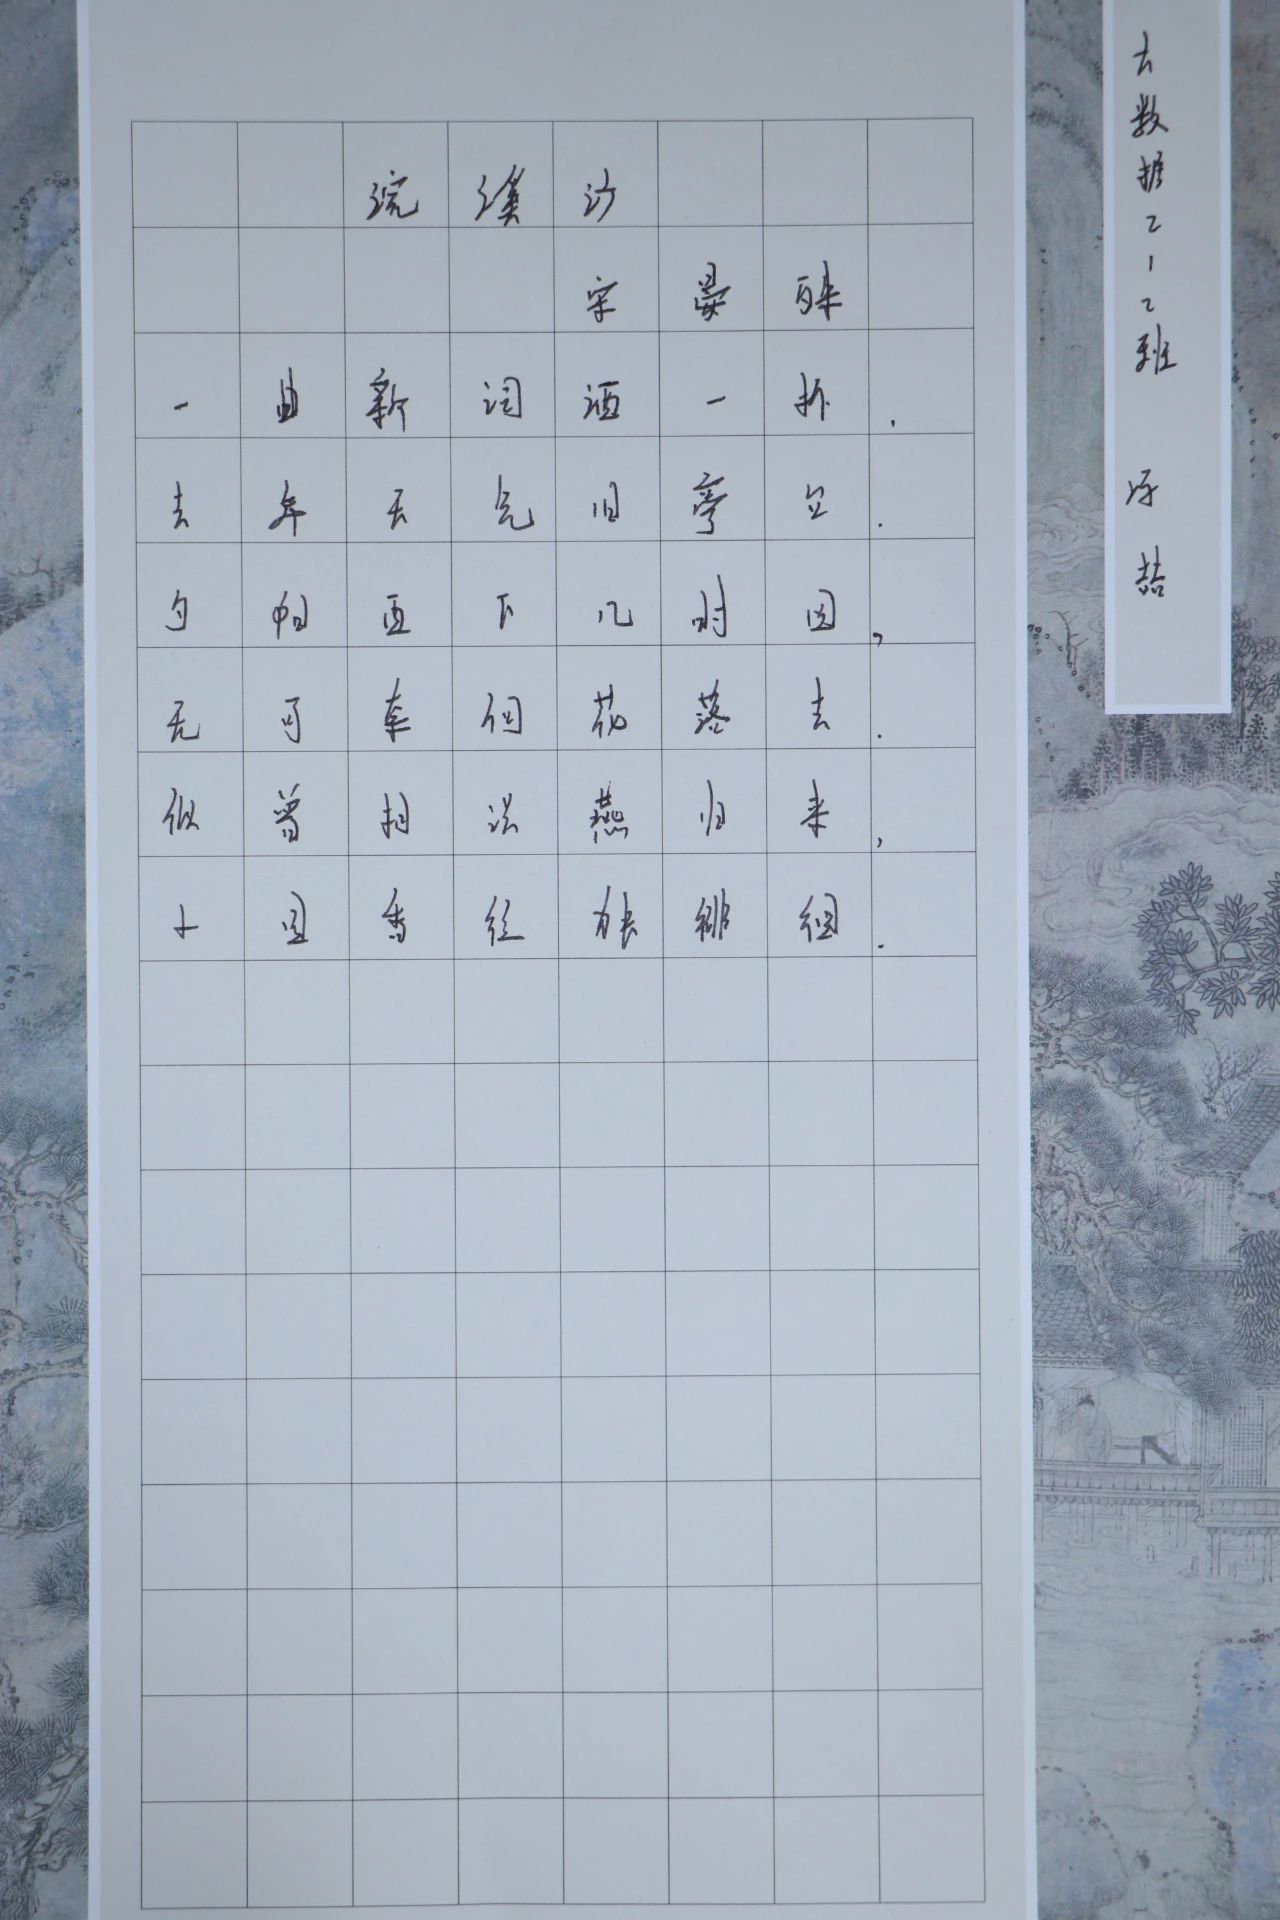 浣溪沙
宋晏殊
一曲新词酒一杯.
去年天气旧亭台.
夕阳西下几时回,
无可奈何花落去.
似曾相识燕归来,
小园香径独徘徊.
大数据212班 喆